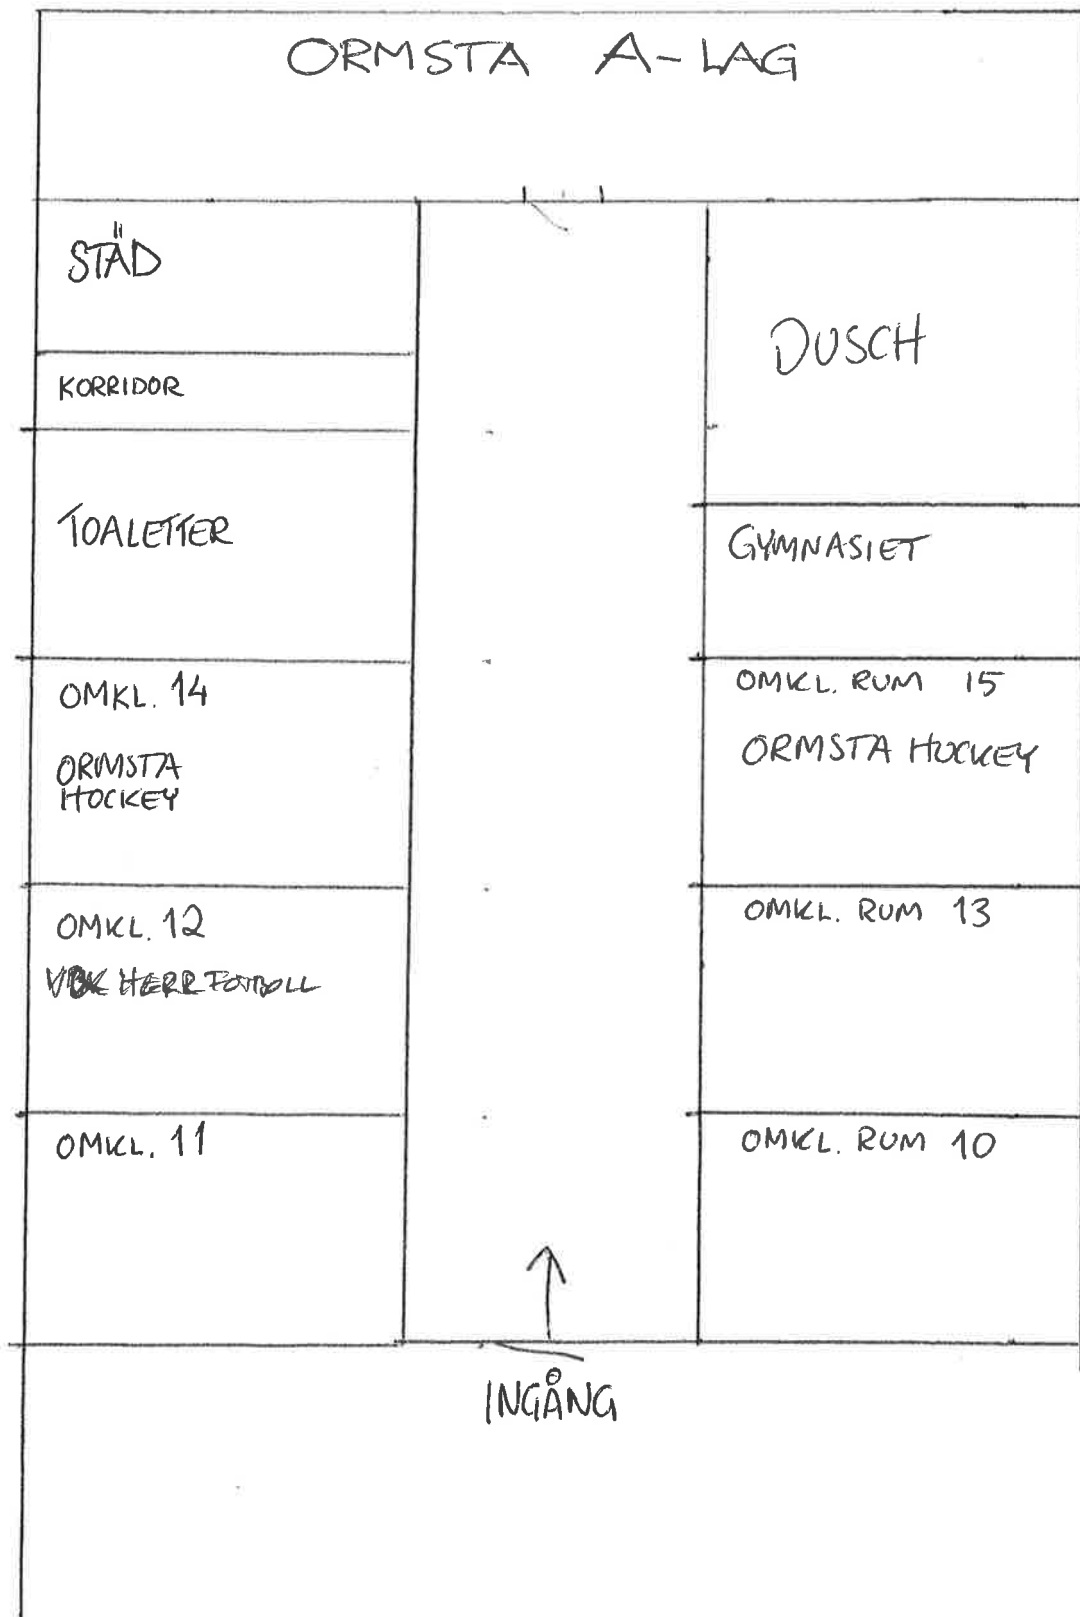 ORMSTA A-LAG
STÄD
KORRIDOR
TOALETTER
OMKL. 14
ORMSTA
HOCKEY
OMKL. 12
VBK HERR FOTBOLL
OMKL. 11
DUSCH
GYMNASIET
OMKL. RUM 15
ORMSTA HOCKEY
OMKL. RUM 13
OMKL. RUM 10
INGÅNG